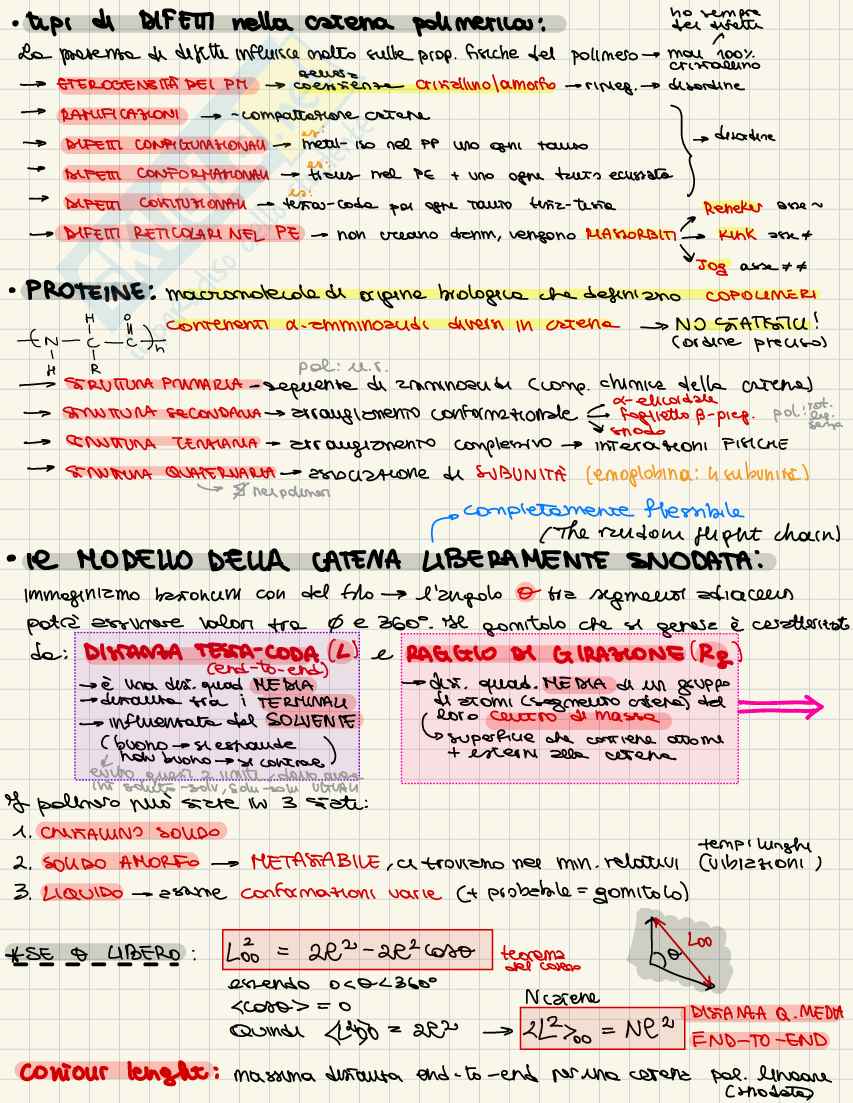 • tipi di DIFETTI nella catena polimerica:
ho sempre dei difetti
La presenza di difetti influisce molto sulle prop. fisiche del polimero → mai 100% cristallino
→ ETEROGENEITÀ DEL PM → coesistenza cristallino/amorfo → ripieg. → disordine
→ RAMIFICAZIONI → ~compattazione catene
→ DIFETTI CONFIGURAZIONALI → es: metal- iso nel PP uno ogni tanto
→ disordine
→ DIFETTI CONFORMAZIONALI → es: trans nel PE + uno ogni tanto eclissato
→ DIFETTI COSTITUZIONALI → es: testa-coda poi ogni tanto testa-testa
→ DIFETTI RETICOLARI NEL PE → non creano danni, vengono RIASSORBITI
Reneker asse ~
Kink asse ≠
Jog asse ≠ ≠
• PROTEINE: macromolecole di origine biologica che definiamo COPOLIMERI
contenenti α-amminoacidi diversi in catena → NO STATISTICI!
(ordine preciso)
H O
( N - C - C )n
H R
pol: u.r.
→ STRUTTURA PRIMARIA - sequenza di amminoacidi (comp. chimica della catena)
→ STRUTTURA SECONDARIA → arrangiamento conformazionale
α-elicoidale
foglietto β-pieg.
snodo
pol: rot. leg.
→ STRUTTURA TERZIARIA → arrangiamento complessivo → interazioni FISICHE
→ STRUTTURA QUATERNARIA → associazione di SUBUNITÀ (emoglobina: 4 subunità)
∄ nei polimeri
completamente flessibile
(The random flight chain)
• IL MODELLO DELLA CATENA LIBERAMENTE SNODATA:
immaginiamo bastoncini con del filo → l'angolo θ tra segmenti adiacenti
potrà assumere valori tra 0 e 360°. Il gomitolo che si genera è caratterizzato
da: DISTANZA TESTA-CODA (L) e RAGGIO DI GIRAZIONE (Rg)
(end-to-end)
→ è una dis. quad MEDIA
→ distanza tra i TERMINALI
→ influenzata dal SOLVENTE
(buono → si espande
non buono → si contrae)
→ dis. quad. MEDIA di un gruppo
di atomi (segmento catena) dal
loro centro di massa
↳ superficie che contiene atomi
+ esterni alla catena
Il polimero può stare in 3 stati:
1. CRISTALLINO SOLIDO
2. SOLIDO AMORFO → METASTABILE, ci troviamo nei min. relativi
tempi lunghi
(vibrazioni)
3. LIQUIDO → assume conformazioni varie (+ probabile = gomitolo)
*SE θ LIBERO: L²oo = 2l² - 2l² cosθ
teorema del coseno
θ Loo
essendo 0<θ<360°
<cosθ> = 0
N catene
Quindi <L²>oo = 2l² → <L²>oo = Nl²
DISTANZA Q. MEDIA
END-TO-END
Contour lenght: massima distanza end-to-end per una catena pol. lineare
(snodata)